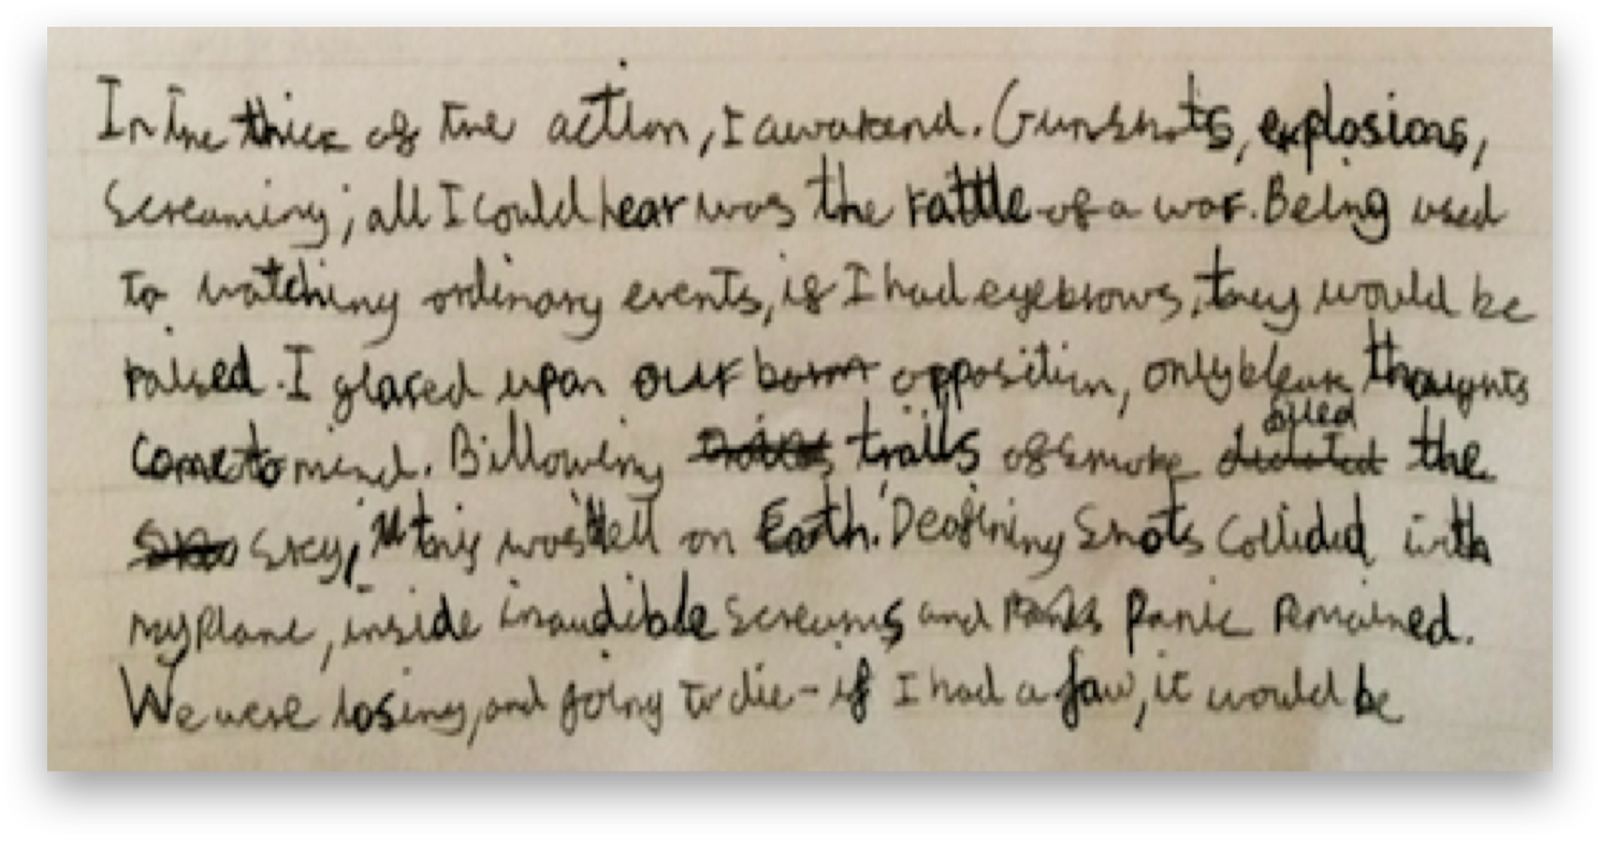 In the thick of the action, I awakend. Gunshots, explosions,
Screaming; all I could hear was the rattle of a war. Being used
to watching ordinary events, if I had eyebrows, they would be
raised. I glared upon our opposition, only bleak thoughts
come to mind. Billowing trails of smoke filled the
sky, "this was Hell on Earth." Deafining shots collided with
my plane, inside inaudible screams and panic remained.
We were losing, and going to die - if I had a jaw, it would be